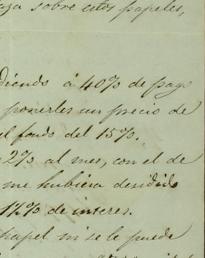 sobre estos papeles,
á 40% de pago
ponerles un precio de
el fondo del 15%.
2% al mes, con el de
me hubiera decidido
de interes.
papel ni se le puede